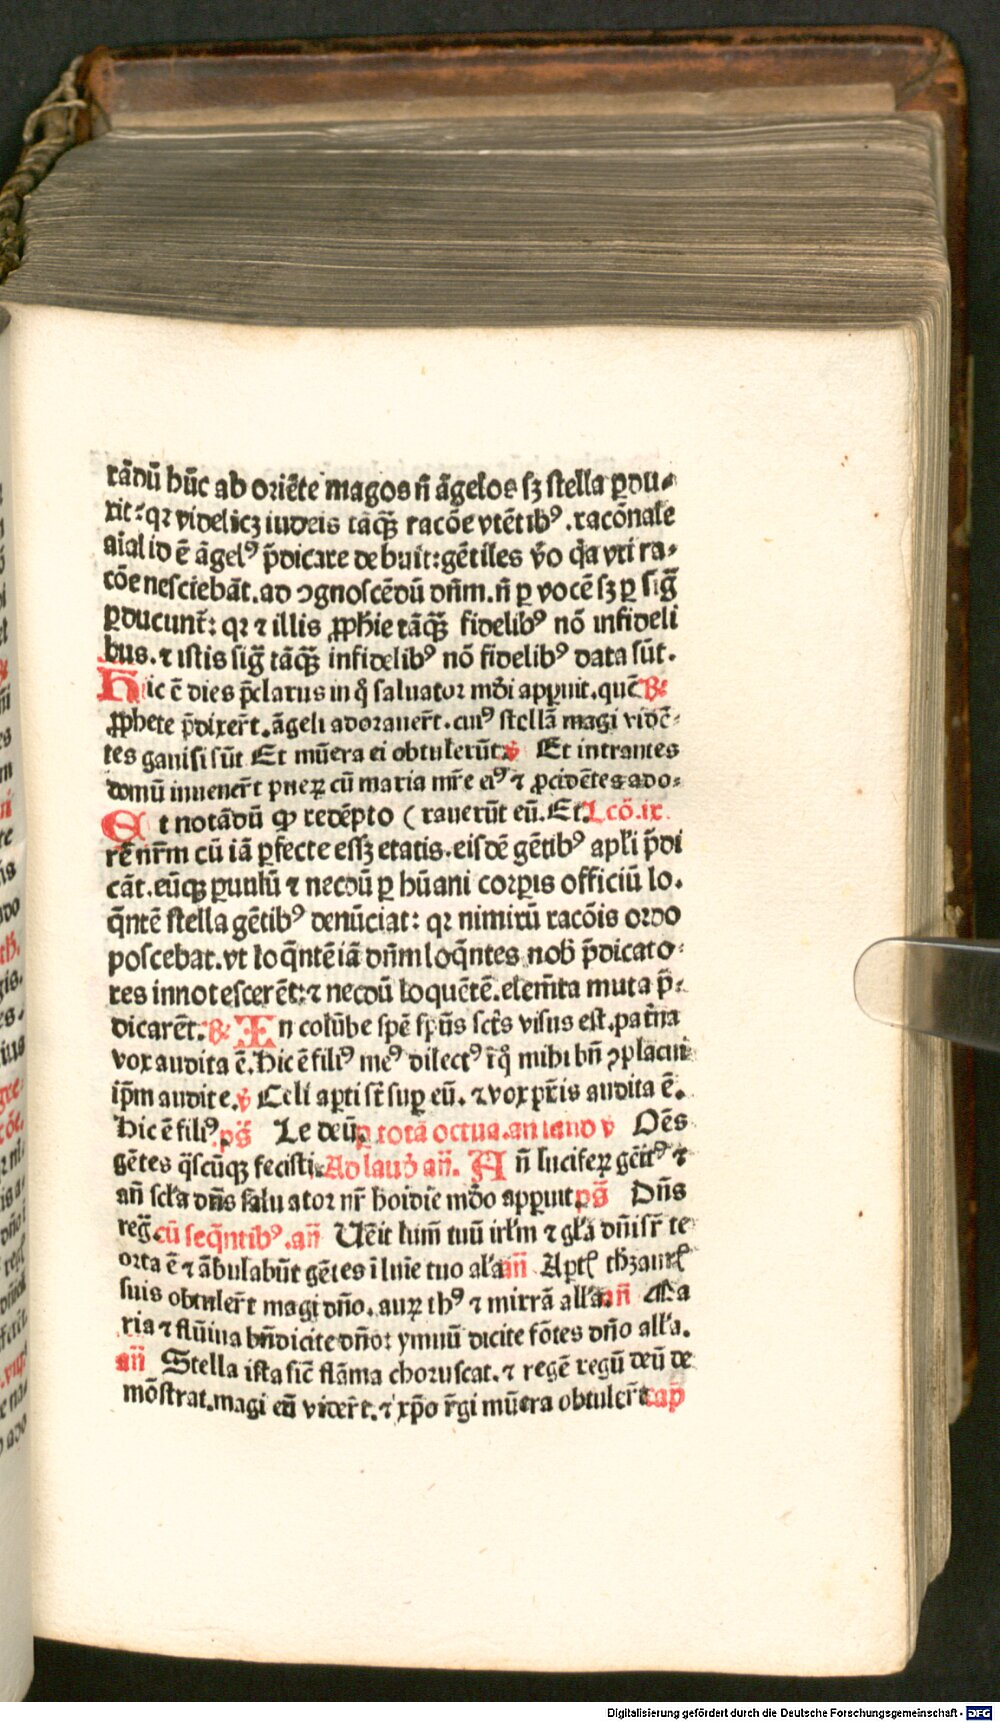 rādū hūc ab oriēte magos n̄ āgelos sꝫ stella ꝑdu⸗
xit: qꝛ videlicꝫ iudeis tāqꝫ̄ racōe vtētibꝰ. racōnale
aīal id ē āgelꝰ p̄dicare debuit: gētiles v̄o qa vti ra⸗
cōe nesciebāt. ad ꝯgnoscēdū dn̄m. n̄ ꝑ vocē sꝫ ꝑ siḡ
ꝑducunt̄: qꝛ ⁊ illis ꝓph̄ie tāqꝫ̄ fidelibꝰ nō infideli
bus. ⁊ istis siḡ tāqꝫ̄ infidelibꝰ nō fidelibꝰ data sūt.
Hic ē dies p̄clarus in q̊ saluator mūdi apꝑuit. quē ℟
ꝓphete p̄dixer̄t. āgeli adorauer̄t. cuiꝰ stellā magi vidē⸗
tes gauisi sūt Et mūera ei obtulerūt. ℣ Et intrantes
domū inuener̄t pueꝝ cū maria mr̄e eiꝰ ⁊ ꝓcidētes ado⸗
Et notādū ꝙ redēpto ( rauerūt eū. Et. Lcō. ix.
rē nr̄m cū iā ꝑfecte essꝫ etatis. eisdē gētibꝰ apl̄i p̄di
cāt. eūqꝫ ꝑuulū ⁊ necdū ꝑ hūani corꝑis officiū lo.
q̄ntē stella gētibꝰ denūciat: qꝛ nimirū racōis ordo
poscebat. vt loq̄ntē iā dn̄m loq̄ntes nob̄ p̄dicato⸗
res innotescerēt: ⁊ necdū loquētē. elem̄ta muta p̄⸗
dicarēt. ℟ In colūbe spē sp̄ūs sct̄s visus est. pat̄na
vox audita ē. Hic ē filiꝰ meꝰ dilectꝰ ī q̊ mihi bn̄ ꝯplacui
ip̄m audite. ℣ Celi aꝑti st̄ suꝑ eū. ⁊ vox pr̄is audita ē.
Hic ē filiꝰ. ps̄ Te deū. ꝑ totā octua. an laud v Oēs
gētes q̄scūqꝫ fecisti. Ad laud̄ an̄. An̄ luciferꝝ gēitꝰ ⁊
an̄ scl̄a dn̄s saluator nr̄ hoidie mūdo apꝑuit ps̄ Dn̄s
reḡ. cū seq̄ntibꝰ. an̄ Uēit lum̄ tuū irl̄m ⁊ gl̄a dn̄i sr̄ te
orta ē ⁊ ābulabūt gētes ī lūie tuo al̓a an̄ Aꝑtꝭ thꝫaurꝭ
suis obtuler̄t magi dn̄o. auꝝ thꝰ ⁊ mirrā all̓a. an̄ Ma
ria ⁊ flūina bn̄dicite dn̄o: ymnū dicite fōtes dn̄o all̓a.
an̄ Stella ista sic̄ flāma choruscat. ⁊ regē regū deū de
mōstrat. magi eū vider̄t. ⁊ xp̄o r̄gi mūera obtuler̄t cap̄